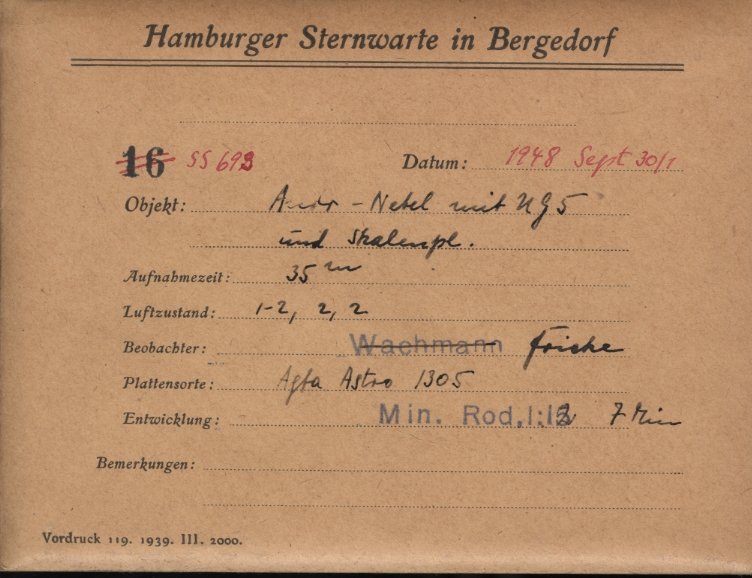 Hamburger Sternwarte in Bergedorf
16 SS 693 Datum: 1948 Sept 30/1
Objekt: Andr - Nebel mit UG5
und Skalenpl.
Aufnahmezeit: 35 m
Luftzustand: 1-2, 2, 2
Beobachter: Wachmann Fricke
Plattensorte: Agfa Astro 1305
Entwicklung: Min. Rod. 1: 7 Min
Bemerkungen:
Vordruck 119. 1939. III. 2000.